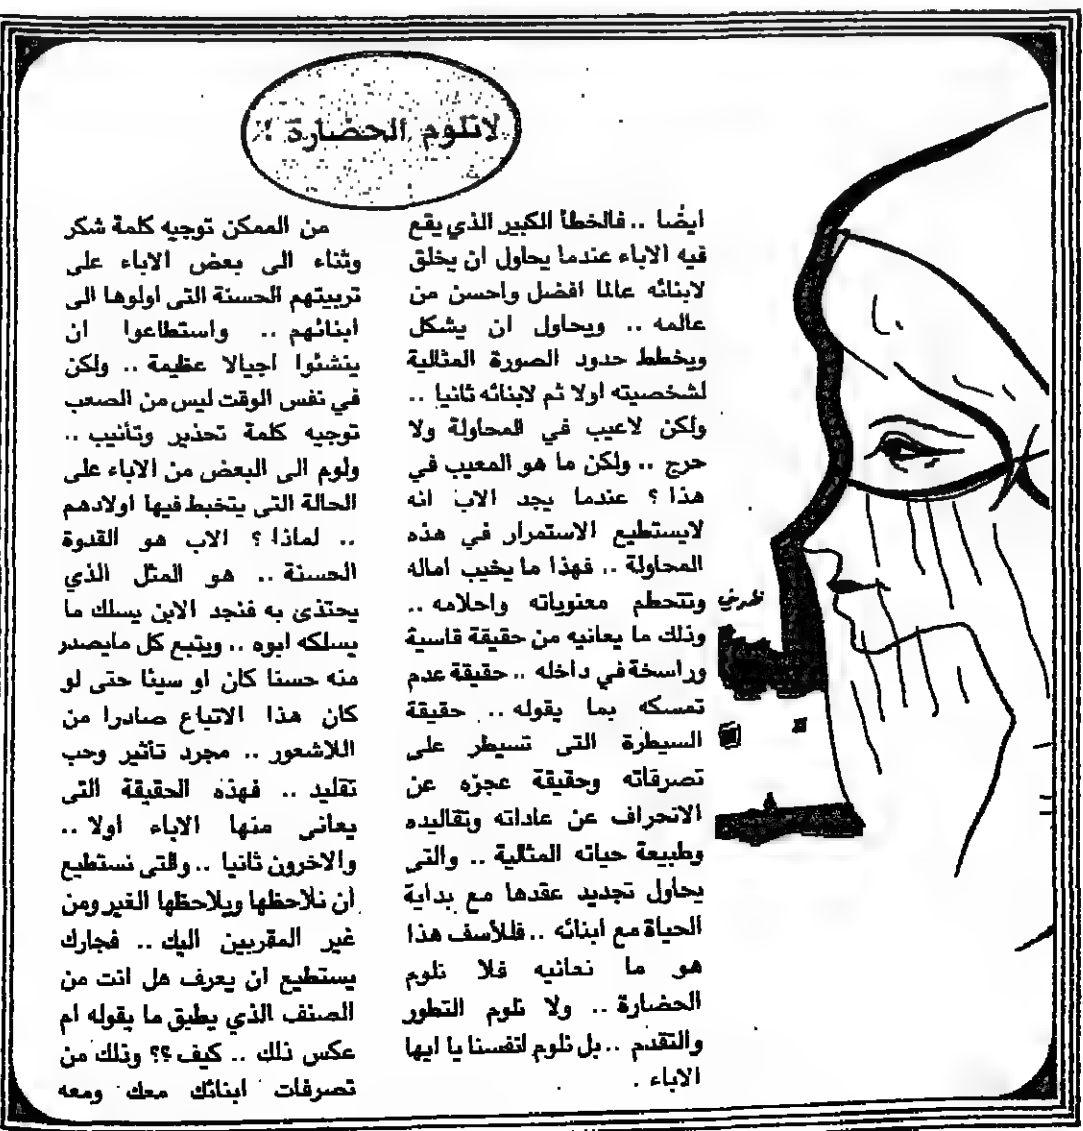 لانلوم الحضارة !
من الممكن توجيه كلمة شكر
وثناء الى بعض الاباء على
تربيتهم الحسنة التى اولوها الى
ابنائهم .. واستطاعوا ان
ينشئوا اجيالا عظيمة .. ولكن
في نفس الوقت ليس من الصعب
توجيه كلمة تحذير وتأنيب ..
ولوم الى البعض من الاباء على
الحالة التى يتخبط فيها اولادهم
.. لماذا ؟ الاب هو القدوة
الحسنة .. هو المثل الذي
يحتذى به فنجد الابن يسلك ما
يسلكه ابوه .. ويتبع كل مايصدر
منه حسنا كان او سيئا حتى لو
كان هذا الاتباع صادرا من
اللاشعور .. مجرد تأثير وحب
تقليد .. فهذه الحقيقة التى
يعانى منها الاباء اولا ..
والاخرون ثانيا .. والتى نستطيع
أن نلاحظها ويلاحظها الغير ومن
غير المقربين اليك .. فجارك
يستطيع ان يعرف هل انت من
الصنف الذي يطبق ما يقوله ام
عكس ذلك .. كيف ؟؟ وذلك من
تصرفات ابنائك معك ومعه
ايضا .. فالخطأ الكبير الذي يقع
فيه الاباء عندما يحاول ان يخلق
لابنائه عالما افضل واحسن من
عالمه .. ويحاول ان يشكل
ويخطط حدود الصورة المثالية
لشخصيته اولا ثم لابنائه ثانيا ..
ولكن لاعيب في المحاولة ولا
حرج .. ولكن ما هو المعيب في
هذا ؟ عندما يجد الاب انه
لايستطيع الاستمرار في هذه
المحاولة .. فهذا ما يخيب اماله
وتتحطم معنوياته واحلامه ..
وذلك ما يعانيه من حقيقة قاسية
وراسخة في داخله .. حقيقة عدم
تمسكه بما يقوله .. حقيقة
السيطرة التى تسيطر على
تصرفاته وحقيقة عجزه عن
الانحراف عن عاداته وتقاليده
وطبيعة حياته المثالية .. والتى
يحاول تجديد عقدها مع بداية
الحياة مع ابنائه .. فللأسف هذا
هو ما نعانيه فلا نلوم
الحضارة .. ولا نلوم التطور
والتقدم .. بل نلوم انفسنا يا ايها
الاباء .